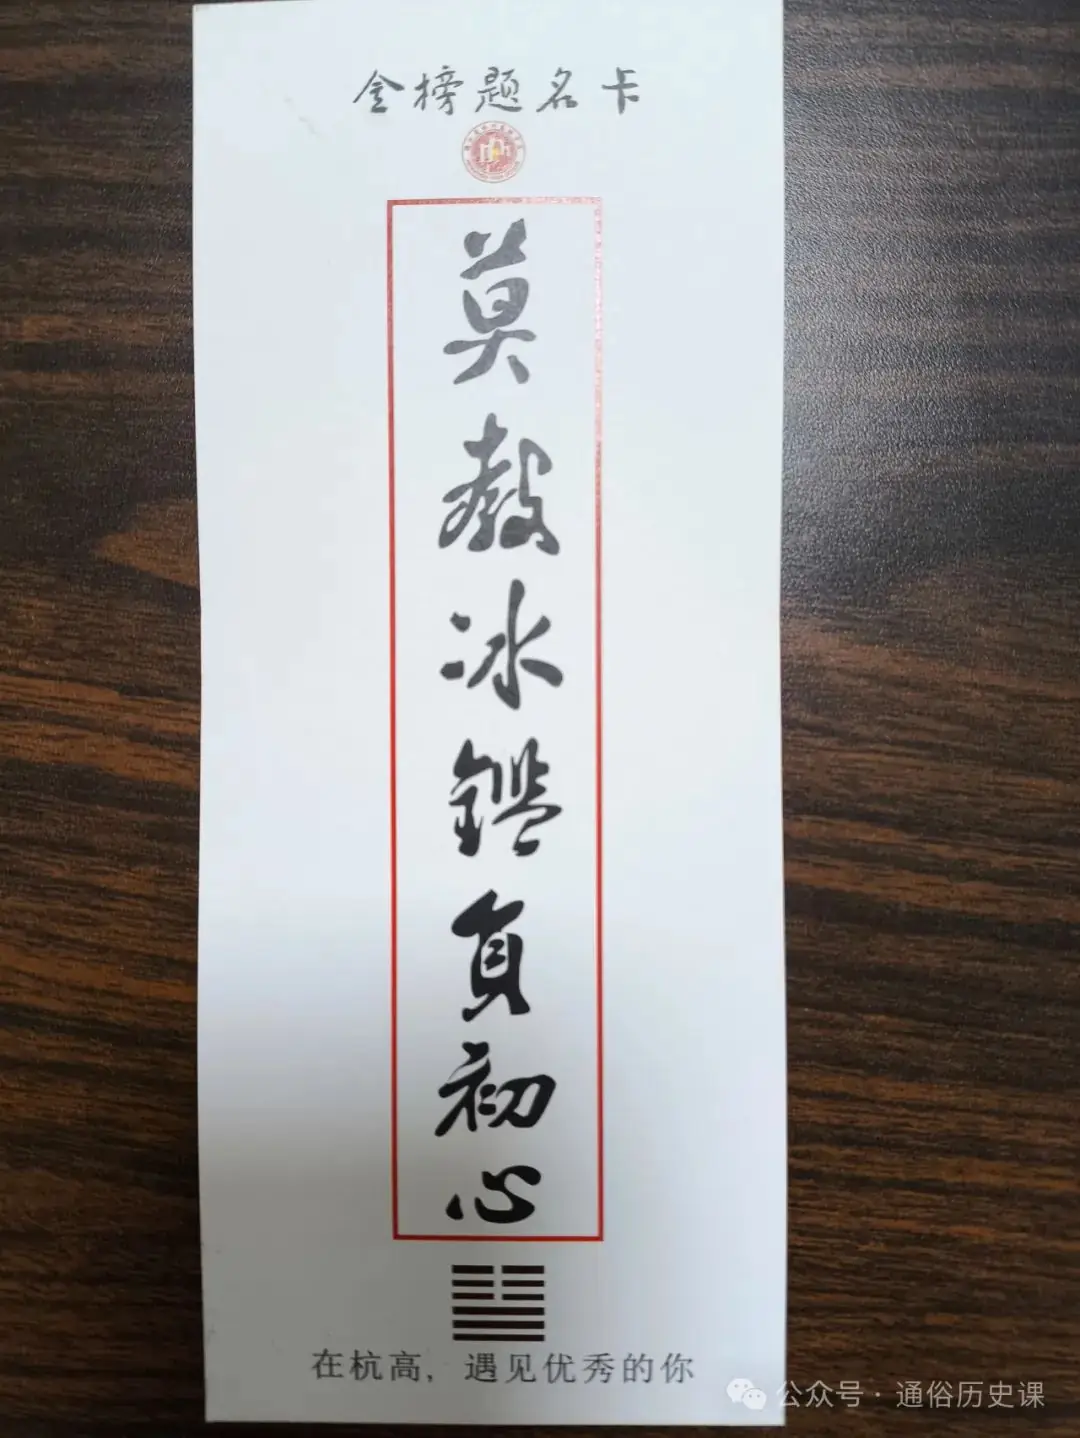 金榜题名卡
莫教冰鑑負初心
在杭高，遇见优秀的你
公众号·通俗历史课